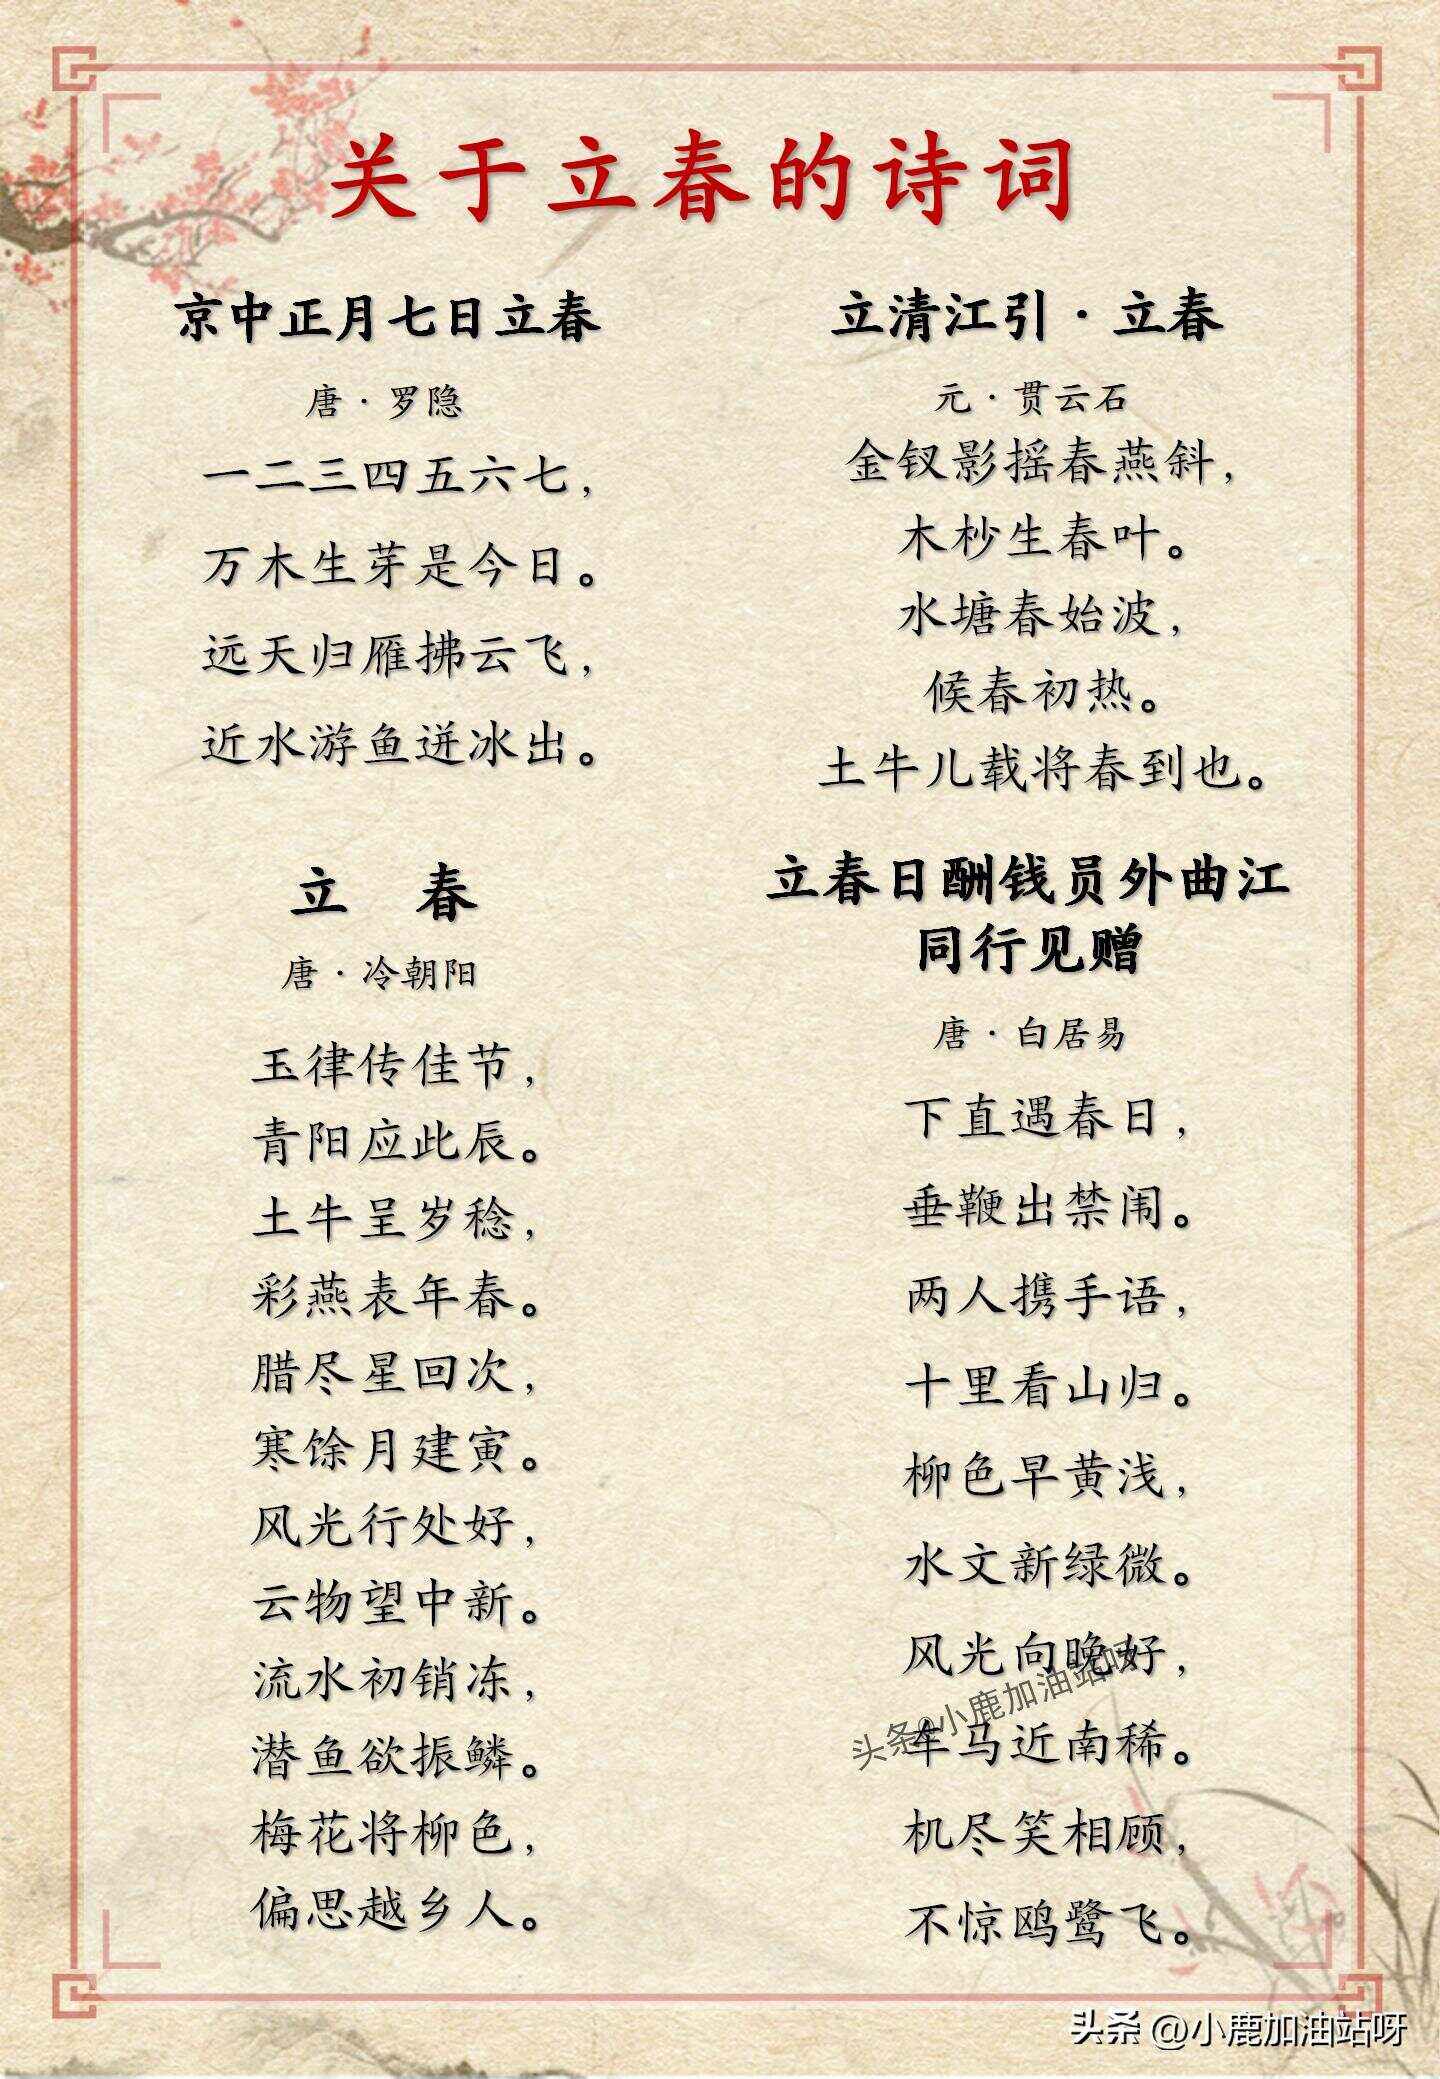 关于立春的诗词
京中正月七日立春
唐·罗隐
一二三四五六七，
万木生芽是今日。
远天归雁拂云飞，
近水游鱼迸冰出。
立 春
唐·冷朝阳
玉律传佳节，
青阳应此辰。
土牛呈岁稔，
彩燕表年春。
腊尽星回次，
寒馀月建寅。
风光行处好，
云物望中新。
流水初销冻，
潜鱼欲振鳞。
梅花将柳色，
偏思越乡人。
立清江引·立春
元·贯云石
金钗影摇春燕斜，
木杪生春叶。
水塘春始波，
候春初热。
土牛儿载将春到也。
立春日酬钱员外曲江
同行见赠
唐·白居易
下直遇春日，
垂鞭出禁闱。
两人携手语，
十里看山归。
柳色早黄浅，
水文新绿微。
风光向晚好，
车马近南稀。
机尽笑相顾，
不惊鸥鹭飞。
头条@小鹿加油站呀
头条 @小鹿加油站呀